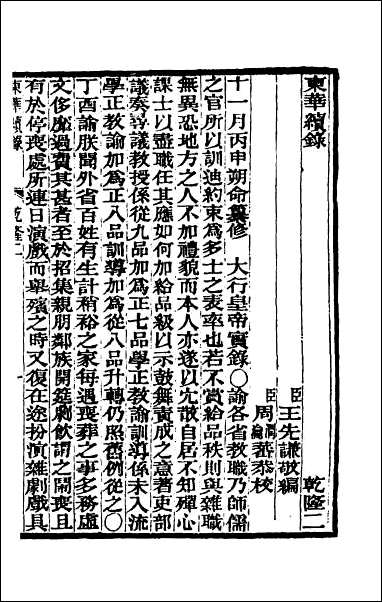 東華續錄
乾隆二
臣王先謙敬編
臣周潤蕃恭校
十一月丙申朔命纂修　大行皇帝實錄○諭各省教職乃師儒
之官所以訓迪約束為多士之表率也若不賞給品秩則與雜職
無異恐地方之人不加禮貌而本人亦遂以宂散自居不知殫心
課士以盡職任其應如何加給品級以示鼓舞責成之意著吏部
議奏尋議教授係從九品加為正七品學正教諭訓導係未入流
學正教諭加為正八品訓導加為從八品升轉仍照舊例從之○
丁酉諭朕聞外省百姓有生計稍裕之家每遇喪葬之事多務虛
文侈靡過費其甚者至於招集親朋鄰族開筵劇飲謂之鬧喪且
有於停喪處所連日演戲而舉殯之時又復在途扮演雜劇戲具
東華續錄
乾隆二
一